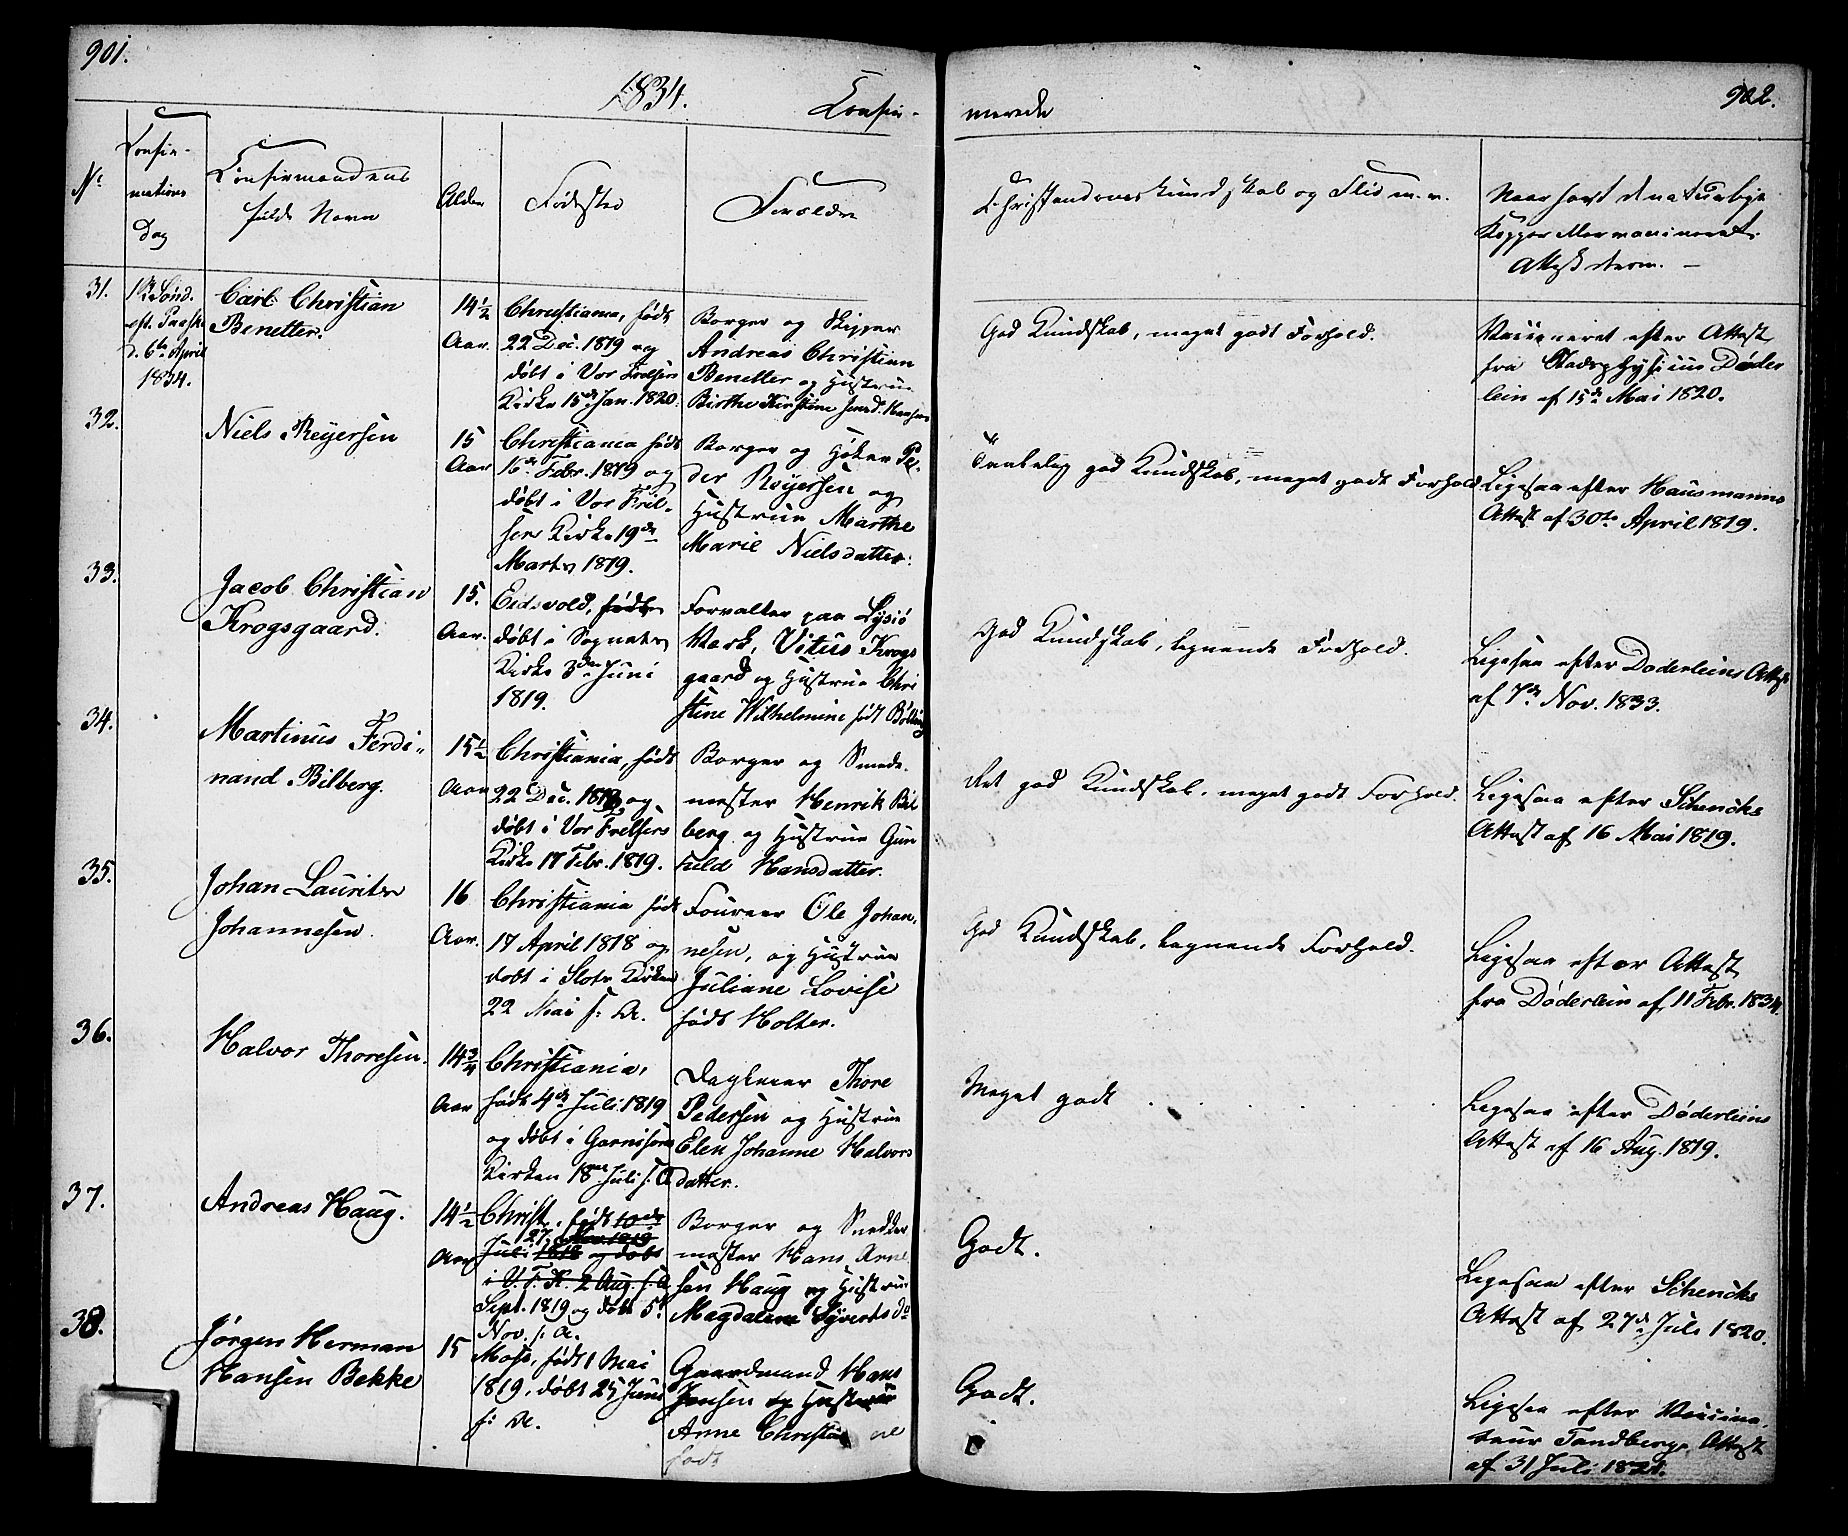 901.
1834.
Confir-
No
Confir-
mations
Dag
Confirmandens
fulde Navn
Alder
Fødested
Forældre
31.
1ste Sønd.
eft. Paaske
d. 6te April
1834.
Carl Christian
Benetter.
14 1/2
Aar.
Christiania, født
22 Dec. 1819 og
døbt i Vor Frelsers
Kirke 15de Jan. 1820.
Borger og Skipper
Andreas Christian
Benetter og Hustrue
Birthe Kirstine
32.
Niels Reyersen
15
Aar
Christiania født
16de Febr. 1819 og
døbt i Vor Frel-
sers Kirke 19de
Marts 1819.
Borger og Høker Pe-
der Reyersen og
Hustrue Marthe
Marie Nielsdatter.
33.
Jacob Christian
Krogsgaard.
15.
Aar.
Eidsvold, født
døbt i Sognets
Kirke 3die Juni
1819.
Forvalter paa
Værk, Vitus Krogs
gaard og Hustrue Chri
stine Wilhelmine født
34.
Martinus Ferdi-
nand Bilberg.
15 1/2
Aar
Christiania, født
22 Dec. 1818 og
døbt i Vor Frelsers
Kirke 17 Febr. 1819.
Borger og Smede-
mester Henrik Bil
berg og Hustrue Gun
hild Hansdatter.
35.
Johan Lauritz
Johannesen.
16
Aar.
Christiania født
17 April 1818 og
døbt i Slots Kirken
22 Mai s: A.
Foureer Ole Johan-
nesen, og Hustrue
Juliane Lovise
født Holter.
36.
Halvor Thoresen.
14 3/4
Aar
Christiania,
født 4de Juli 1819
og døbt i Garnisons
Kirken 18de Juli s: A
Dagleier Thore
Pedersen og Hustrue
Elen Johanne Halvors
datter.
37.
Andreas Haug.
14 1/2
Aar
Christ. født 10de
27 Nov. 1819
Juli 1818 og døbt
i V. F. K. 2 Aug. s: A
Sept. 1819 og døbt 5te
Nov. s: A.
Borger og Snedker
mester Hans Arne
sen Haug og Hustrue
Magdalene Syverts dr
38.
Jørgen Herman
Hansen Bekke
15
Moss, født 1 Mai
1819, døbt 25 Juni
s: A.
Gaardmand Hans
Jensen og Hustrue
Anne Christine
født
902.
merede
Christendomskundskab og Flid m. v.
Naar havt de naturlige
Kopper eller vaccineret
Attesterne. —
God Kundskab, meget godt Forhold.
Vaccineret efter Attest
fra Stadsphysicus Døder
lein af 15de Mai 1820.
Temmelig god Kundskab, meget godt Forhold
Ligesaa efter Hausmanns
Attest af 30te April 1819.
God Kundskab, lignende Forhold.
Ligesaa efter Døderleins Attest
af 7de Nov. 1833.
Ret god Kundskab, meget godt Forhold.
Ligesaa efter Schencks
Attest af 16 Mai 1819.
God Kundskab, lignende Forhold.
Ligesaa efter Attest
fra Døderlein af 11 Febr. 1834.
Meget godt . . . . .
Ligesaa efter Døderleins
Attest af 16 Aug. 1819.
Godt.
Ligesaa efter Schencks
Attest af 27de Juli 1820.
Godt.
Ligesaa efter Vaccina-
teur Tandbergs Attest
af 31 Juli 1821.